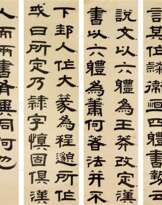 說文以六體為王莽改定漢
書以六體為蕭何著法并不
下邽人作大篆為程邈所作
或曰所定乃隸字慎固俱漢
人而兩書異同何也